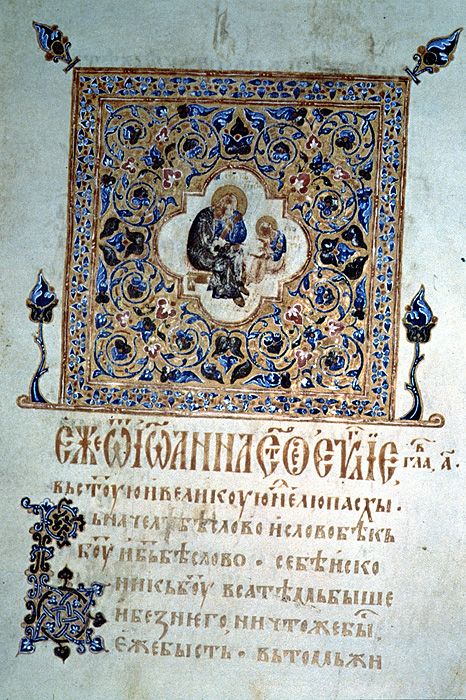 ЕЖЕ Ѿ ІѠАННА СТ҃ОЕ ЕѴ҃ЛІЕ, гла, а҃.
въ ст҃оую и великоую н҃елю пасхы.
ьначелѣ бѣ слово и слово бѣ къ
б҃оу и б҃ъ бѣ слово . се бѣ иско
ни къ б҃оу в'са тѣмь быше
и без него, ничтоже бы,
еже бысть . въ томь жи